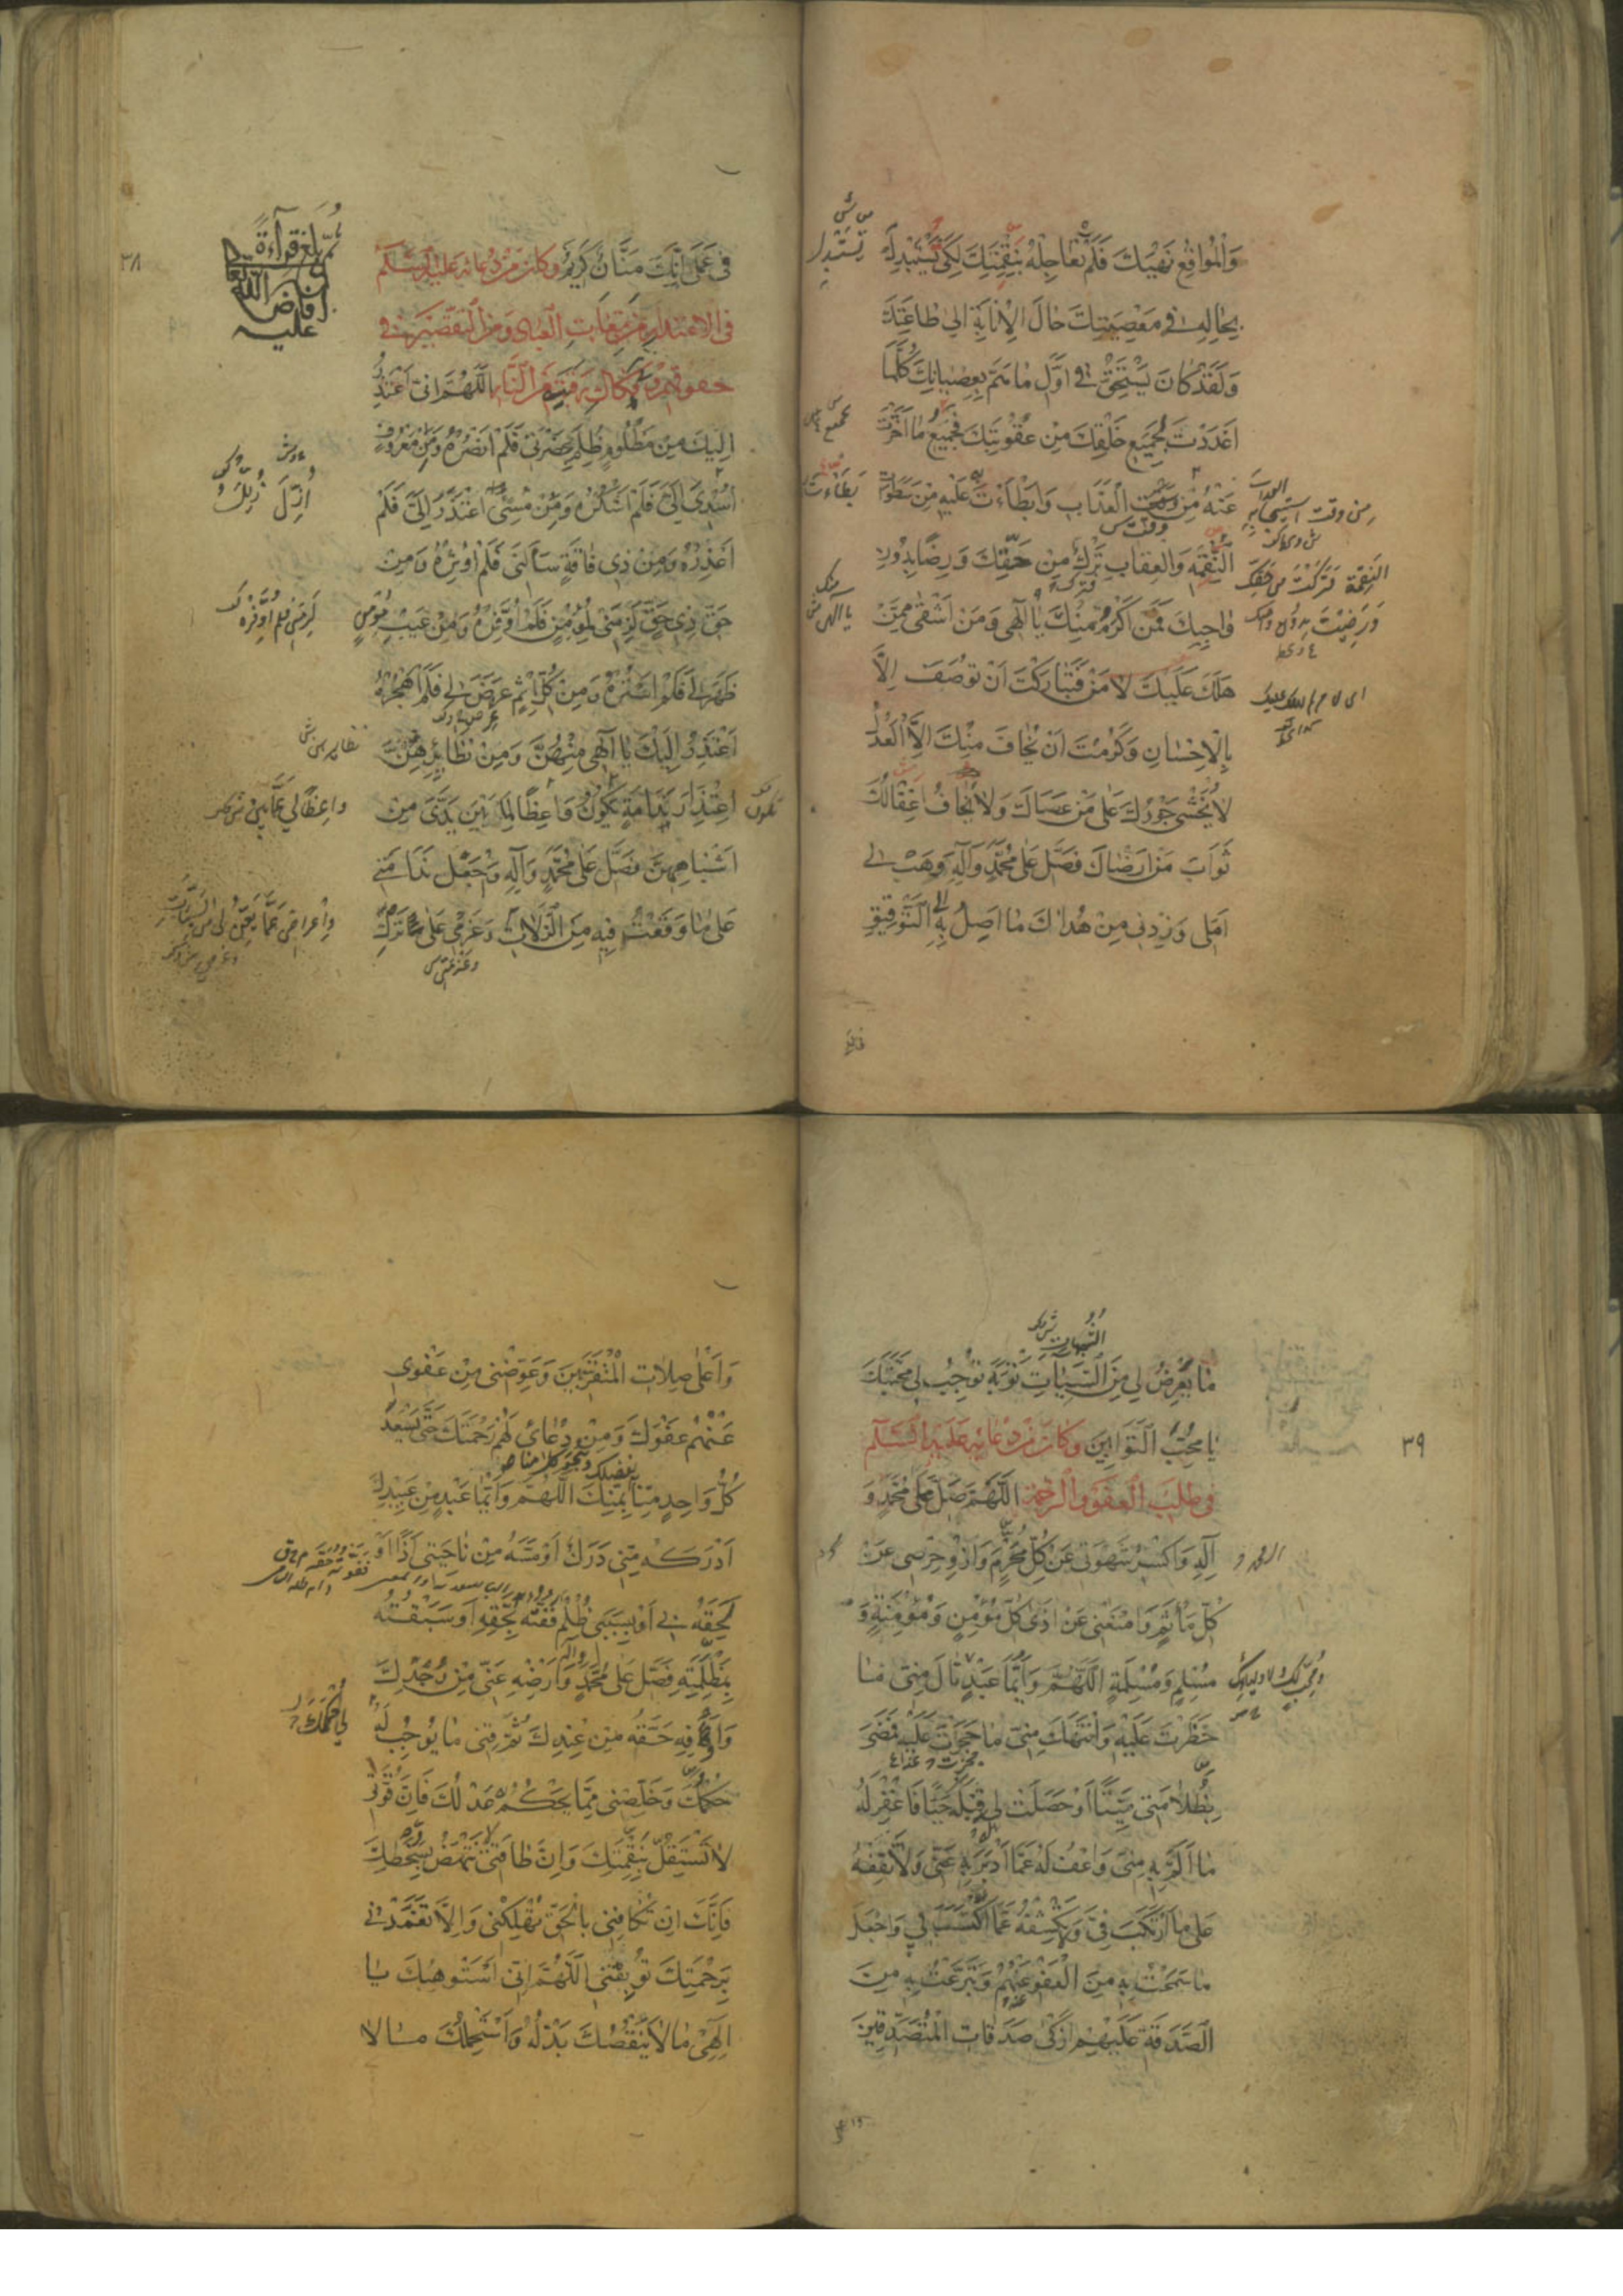 وَالْمُوَاقِعِ نَهْيَكَ فَلَمْ تُعَاجِلْهُ بِنَقِمَتِكَ لِكَيْ يَسْتَبْدِلَ
بِحَالِهِ فِي مَعْصِيَتِكَ حَالَ الْإِنَابَةِ إِلَى طَاعَتِكَ
وَلَقَدْ كَانَ يَسْتَحِقُّ فِي أَوَّلِ مَا هَمَّ بِعِصْيَانِكَ كُلَّمَا
أَعْدَدْتَ لِجَمِيعِ خَلْقِكَ مِنْ عُقُوبَتِكَ فَجَمِيعُ مَا أَخَّرْتَ
عَنْهُ مِنْ وَقْتِ الْعَذَابِ وَأَبْطَأْتَ عَلَيْهِ مِنْ سَطَوَاتِ
النَّقِمَةِ وَالْعِقَابِ تَرْكٌ مِنْ حَقِّكَ وَرِضًا بِدُونِ
وَاجِبِكَ فَمَنْ أَكْرَمُ مِنْكَ يَا إِلَهِي وَمَنْ أَشْقَى مِمَّنْ
هَلَكَ عَلَيْكَ لَا مَنْ فَتَبَارَكْتَ أَنْ تُوصَفَ إِلَّا
بِالْإِحْسَانِ وَكَرُمْتَ أَنْ يُخَافَ مِنْكَ إِلَّا الْعَدْلُ
لَا يُخْشَى جَوْرُكَ عَلَى مَنْ عَصَاكَ وَلَا يُخَافُ إِغْفَالُكَ
ثَوَابَ مَنْ أَرْضَاكَ فَصَلِّ عَلَى مُحَمَّدٍ وَآلِهِ وَهَبْ لِي
أَمَلِي وَزِدْنِي مِنْ هُدَاكَ مَا أَصِلُ بِهِ إِلَى التَّوْفِيقِ
يستبدل
بجميع
من وقت العذاب
النقمة تركت من حقك
ورضيت بدون
يا إلهي منك
٣٨
ثم بلغ قراءة
فِي عَمَلِي إِنَّكَ مَنَّانٌ كَرِيمٌ وَكَانَ مِنْ دُعَائِهِ عَلَيْهِ السَّلَامُ
فِي الِاعْتِذَارِ مِنْ تَبِعَاتِ الْعِبَادِ وَمِنَ التَّقْصِيرِ فِي
حُقُوقِهِمْ وَفِي فَكَاكِ رَقَبَتِهِ مِنَ النَّارِ اللَّهُمَّ إِنِّي أَعْتَذِرُ
إِلَيْكَ مِنْ مَظْلُومٍ ظُلِمَ بِحَضْرَتِي فَلَمْ أَنْصُرْهُ وَمِنْ مَعْرُوفٍ
أُسْدِيَ إِلَيَّ فَلَمْ أَشْكُرْهُ وَمِنْ مُسِيءٍ اعْتَذَرَ إِلَيَّ فَلَمْ
أَعْذِرْهُ وَمِنْ ذِي فَاقَةٍ سَأَلَنِي فَلَمْ أُوثِرْهُ وَمِنْ
حَقِّ ذِي حَقٍّ لَزِمَنِي لِمُؤْمِنٍ فَلَمْ أُوَفِّرْهُ وَمِنْ عَيْبِ مُؤْمِنٍ
ظَهَرَ لِي فَلَمْ أَسْتُرْهُ وَمِنْ كُلِّ إِثْمٍ عَرَضَ لِي فَلَمْ أَهْجُرْهُ
أَعْتَذِرُ إِلَيْكَ يَا إِلَهِي مِنْهُنَّ وَمِنْ نَظَائِرِهِنَّ
اعْتِذَارَ نَدَامَةٍ يَكُونُ وَاعِظًا لِمَا بَيْنَ يَدَيَّ مِنْ
أَشْبَاهِهِنَّ فَصَلِّ عَلَى مُحَمَّدٍ وَآلِهِ وَاجْعَلْ نَدَامَتِي
عَلَى مَا وَقَعْتُ فِيهِ مِنَ الزَّلَّاتِ وَعَزْمِي عَلَى تَرْكِ
لزمني فلم أوفره
تكون
٣٩
الشبهات
مَا يَعْرِضُ لِي مِنَ السَّيِّئَاتِ تَوْبَةً تُوجِبُ لِي مَحَبَّتَكَ
يَا مُحِبَّ التَّوَّابِينَ وَكَانَ مِنْ دُعَائِهِ عَلَيْهِ السَّلَامُ
فِي طَلَبِ الْعَفْوِ وَالرَّحْمَةِ اللَّهُمَّ صَلِّ عَلَى مُحَمَّدٍ وَ
آلِهِ وَاكْسِرْ شَهْوَتِي عَنْ كُلِّ مَحْرَمٍ وَازْوِ حِرْصِي عَنْ
كُلِّ مَأْثَمٍ وَامْنَعْنِي عَنْ أَذَى كُلِّ مُؤْمِنٍ وَمُؤْمِنَةٍ وَ
مُسْلِمٍ وَمُسْلِمَةٍ اللَّهُمَّ وَأَيُّمَا عَبْدٍ نَالَ مِنِّي مَا
حَظَرْتَ عَلَيْهِ وَانْتَهَكَ مِنِّي مَا حَجَرْتَ عَلَيْهِ فَمَضَى
بِظُلَامَتِي مَيِّتًا أَوْ حَصَلَتْ لِي قِبَلَهُ حَيًّا فَاغْفِرْ لَهُ
مَا أَلَمَّ بِهِ مِنِّي وَاعْفُ لَهُ عَمَّا أَدْبَرَ بِهِ عَنِّي وَلَا تَقِفْهُ
عَلَى مَا ارْتَكَبَ فِيَّ وَلَا تَكْشِفْهُ عَمَّا اكْتَسَبَ بِي وَاجْعَلْ
مَا سَمَحْتُ بِهِ مِنَ الْعَفْوِ عَنْهُمْ وَتَبَرَّعْتُ بِهِ مِنَ
الصَّدَقَةِ عَلَيْهِمْ أَزْكَى صَدَقَاتِ الْمُتَصَدِّقِينَ
وَأَعْلَى صِلَاتِ الْمُتَقَرِّبِينَ وَعَوِّضْنِي مِنْ عَفْوِي
عَنْهُمْ عَفْوَكَ وَمِنْ دُعَائِي لَهُمْ رَحْمَتَكَ حَتَّى يَسْعَدَ
كُلُّ وَاحِدٍ مِنَّا بِمَنِّكَ اللَّهُمَّ وَأَيُّمَا عَبْدٍ مِنْ عَبِيدِكَ
أَدْرَكَهُ مِنِّي دَرَكٌ أَوْ مَسَّهُ مِنْ نَاحِيَتِي أَذًى أَوْ
لَحِقَهُ بِي أَوْ بِسَبَبِي ظُلْمٌ فَفُتُّهُ بِحَقِّهِ أَوْ سَبَقْتُهُ
بِمَظْلِمَتِهِ فَصَلِّ عَلَى مُحَمَّدٍ وَآلِهِ وَأَرْضِهِ عَنِّي مِنْ وُجْدِكَ
وَأَوْفِهِ حَقَّهُ مِنْ عِنْدِكَ ثُمَّ قِنِي مَا يُوجِبُ لَهُ
حُكْمُكَ وَخَلِّصْنِي مِمَّا يَحْكُمُ بِهِ عَدْلُكَ فَإِنَّ قُوَّتِي
لَا تَسْتَقِلُّ بِنَقِمَتِكَ وَإِنَّ طَاقَتِي لَا تَنْهَضُ بِسُخْطِكَ
فَإِنَّكَ إِنْ تُكَافِنِي بِالْحَقِّ تُهْلِكْنِي وَإِلَّا تَغَمَّدْنِي
بِرَحْمَتِكَ تُوبِقْنِي اللَّهُمَّ إِنِّي أَسْتَوْهِبُكَ يَا
إِلَهِي مَا لَا يَنْقُصُكَ بَذْلُهُ وَأَسْتَحْمِلُكَ مَا لَا